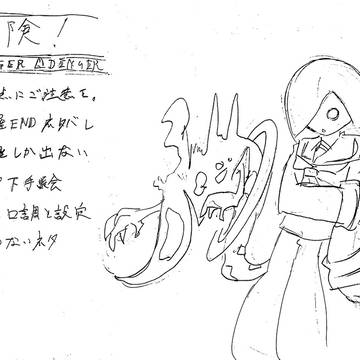 険！
GER DENGER
点にご注意を。
ENDネタバレ
しか出ない
下手絵
口調と設定
ないネタ